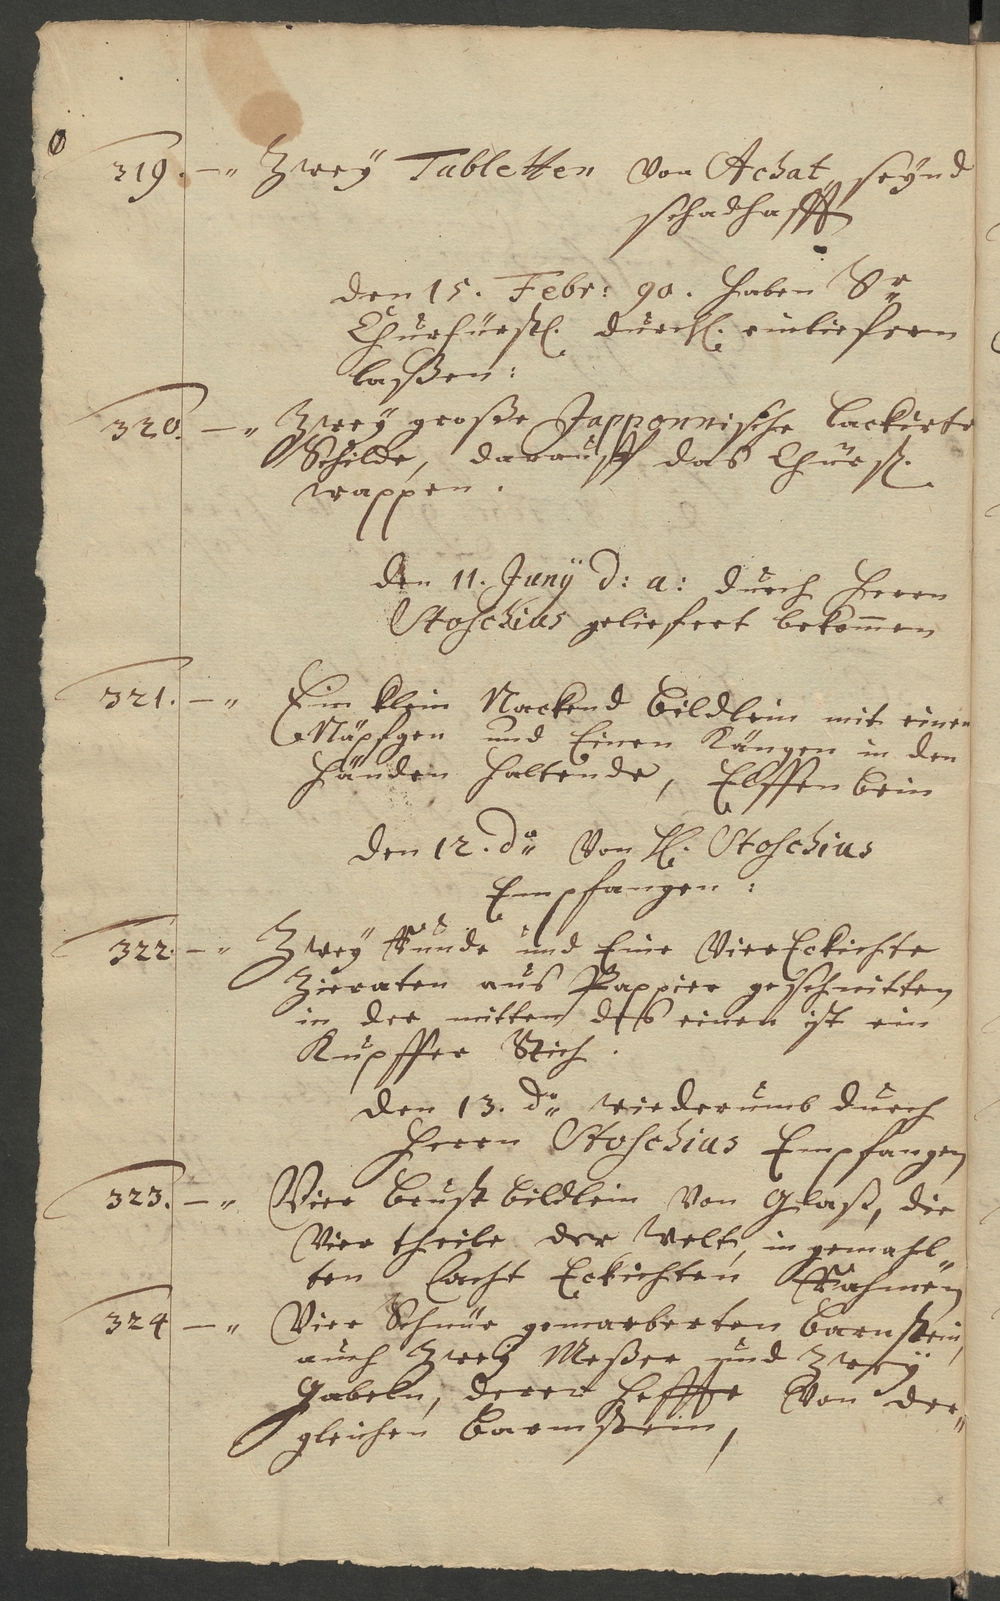 319. — " Zweÿ Tabletten von Achat seÿnd
schadhafft
den 15. Febr: 90. haben Sr
Churfürstl. durchl. einliefern
laßen:
320. — " Zweÿ große Japponnische lackirte
Schilde, darauff das Churfl.
wappen.
den 11. Junÿ d: a: durch Herrn
Stoschius geliefert bekom̄en
321. — " Ein klein Nackend bildlein mit einen
Näpfgen und Einen Kängen in den
händen haltende, Elffenbein
den 12. do von H. Stoschius
Empfangen:
322. — " Zweÿ Runde und Eine VierEckichte
Zieraten aus Pappier geschnitten
in der mitten des einen ist ein
Kupffer Stich.
den 13. do wiederumb durch
Herrn Stoschius Empfangen
323. — " Vier brust bildlein von Glaß, die
Vier theile der Welt, in gemahl-
ten acht Eckichten Rahmen
324 — " Vier Schnür gemarberten barnstein,
auch Zweÿ Meßer und Zweÿ
Gabeln, deren heffte von der-
gleichen barnstein,